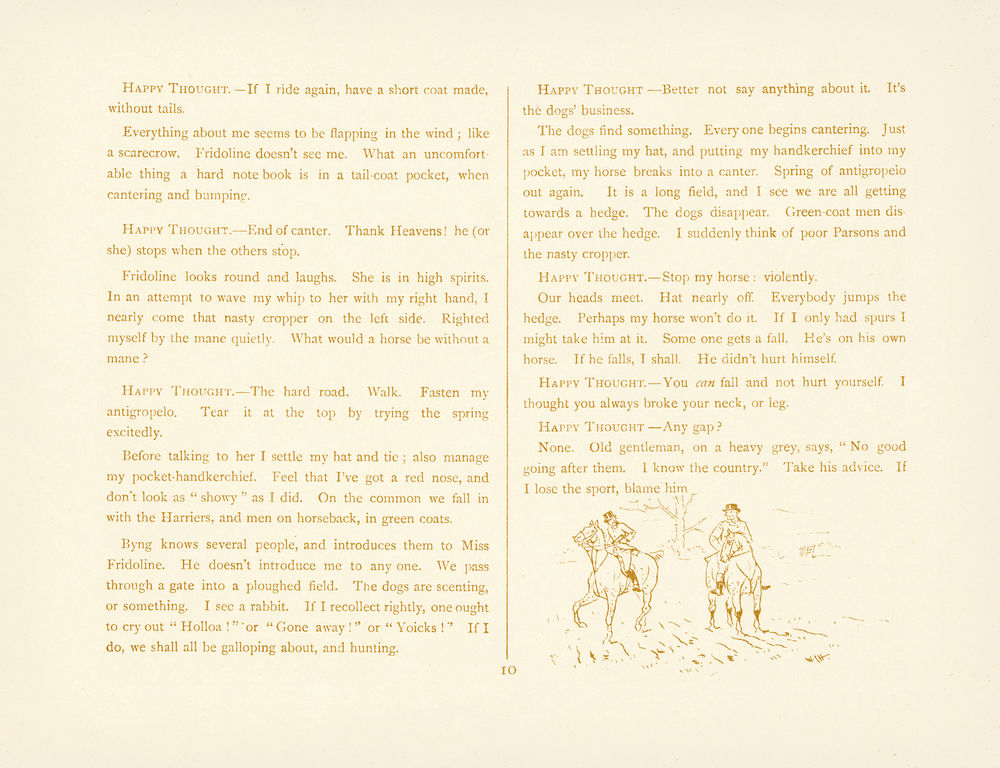 HAPPY THOUGHT.—If I ride again, have a short coat made,
without tails.
Everything about me seems to be flapping in the wind ; like
a scarecrow. Fridoline doesn't see me. What an uncomfort-
able thing a hard note book is in a tail-coat pocket, when
cantering and bumping.
HAPPY THOUGHT.—End of canter. Thank Heavens! he (or
she) stops when the others stop.
Fridoline looks round and laughs. She is in high spirits.
In an attempt to wave my whip to her with my right hand, I
nearly come that nasty cropper on the left side. Righted
myself by the mane quietly. What would a horse be without a
mane ?
HAPPY THOUGHT.—The hard road. Walk. Fasten my
antigropelo. Tear it at the top by trying the spring
excitedly.
Before talking to her I settle my hat and tie ; also manage
my pocket-handkerchief. Feel that I've got a red nose, and
don't look as " showy " as I did. On the common we fall in
with the Harriers, and men on horseback, in green coats.
Byng knows several people, and introduces them to Miss
Fridoline. He doesn't introduce me to any one. We pass
through a gate into a ploughed field. The dogs are scenting,
or something. I see a rabbit. If I recollect rightly, one ought
to cry out " Holloa ! " or " Gone away ! " or " Yoicks ! " If I
do, we shall all be galloping about, and hunting.
HAPPY THOUGHT —Better not say anything about it. It's
the dogs' business.
The dogs find something. Every one begins cantering. Just
as I am settling my hat, and putting my handkerchief into my
pocket, my horse breaks into a canter. Spring of antigropelo
out again. It is a long field, and I see we are all getting
towards a hedge. The dogs disappear. Green-coat men dis-
appear over the hedge. I suddenly think of poor Parsons and
the nasty cropper.
HAPPY THOUGHT.—Stop my horse : violently.
Our heads meet. Hat nearly off. Everybody jumps the
hedge. Perhaps my horse won't do it. If I only had spurs I
might take him at it. Some one gets a fall. He's on his own
horse. If he falls, I shall. He didn't hurt himself.
HAPPY THOUGHT.—You can fall and not hurt yourself. I
thought you always broke your neck, or leg.
HAPPY THOUGHT —Any gap ?
None. Old gentleman, on a heavy grey, says, " No good
going after them. I know the country." Take his advice. If
I lose the sport, blame him
10